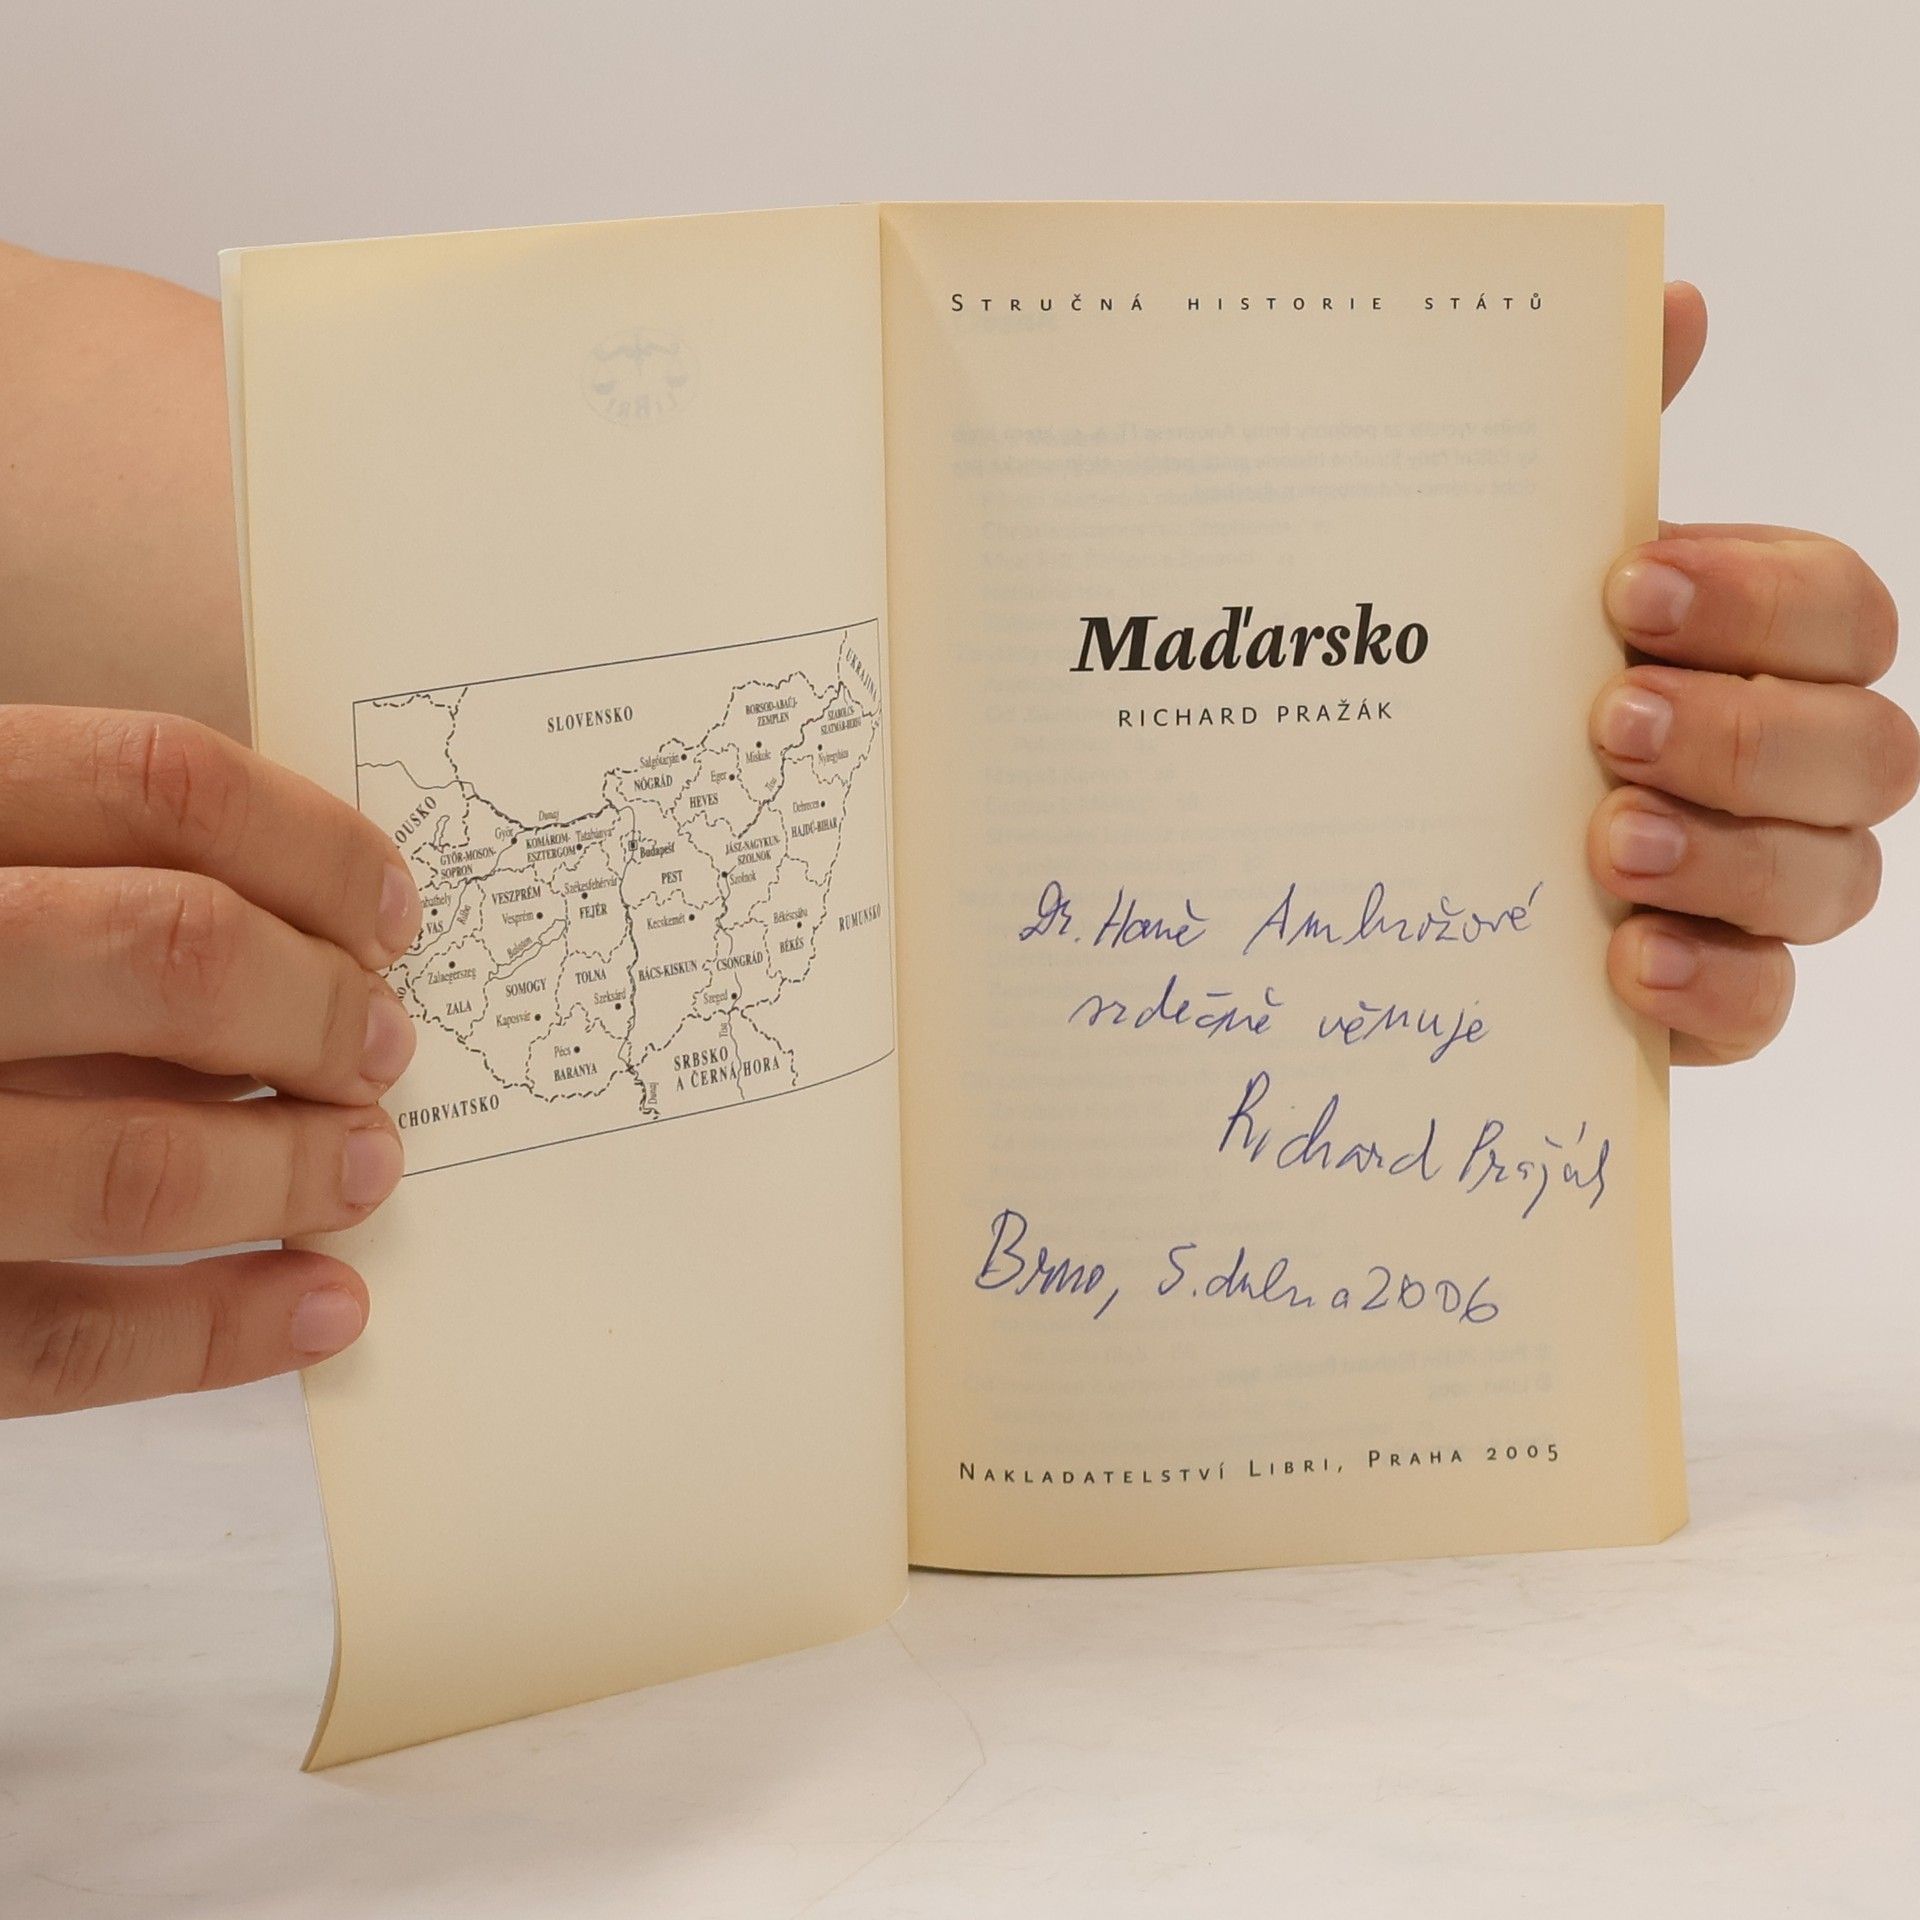 SLOVENSKO
UKRAJINA
BORSOD-ABAÚJ-
ZEMPLEN
SZABOLCS-
SZATMÁR-BEREG
Salgótarján
Miskolc
Nyíregyháza
NÓGRÁD
Eger
HEVES
Debrecen
HAJDÚ-BIHAR
Dunaj
Győr
KOMÁROM-
ESZTERGOM
Tatabánya
Budapešť
JÁSZ-NAGYKUN-
SZOLNOK
GYŐR-MOSON-
SOPRON
PEST
Szolnok
VESZPRÉM
Székesfehérvár
FEJÉR
Rába
VAS
Vesprém
Kecskemét
Békéscsaba
BÉKÉS
RUMUNSKO
Balaton
Zalaegerszeg
ZALA
SOMOGY
TOLNA
BÁCS-KISKUN
CSONGRÁD
Szekszárd
Szeged
Kaposvár
Tisa
Pécs
BARANYA
SRBSKO
A ČERNÁ HORA
Dunaj
CHORVATSKO
STRUČNÁ HISTORIE STÁTŮ
Maďarsko
RICHARD PRAŽÁK
Dr. Haně Ambrožové
srdečně věnuje
Richard Pražák
Brno, 5. dubna 2006
NAKLADATELSTVÍ LIBRI, PRAHA 2005